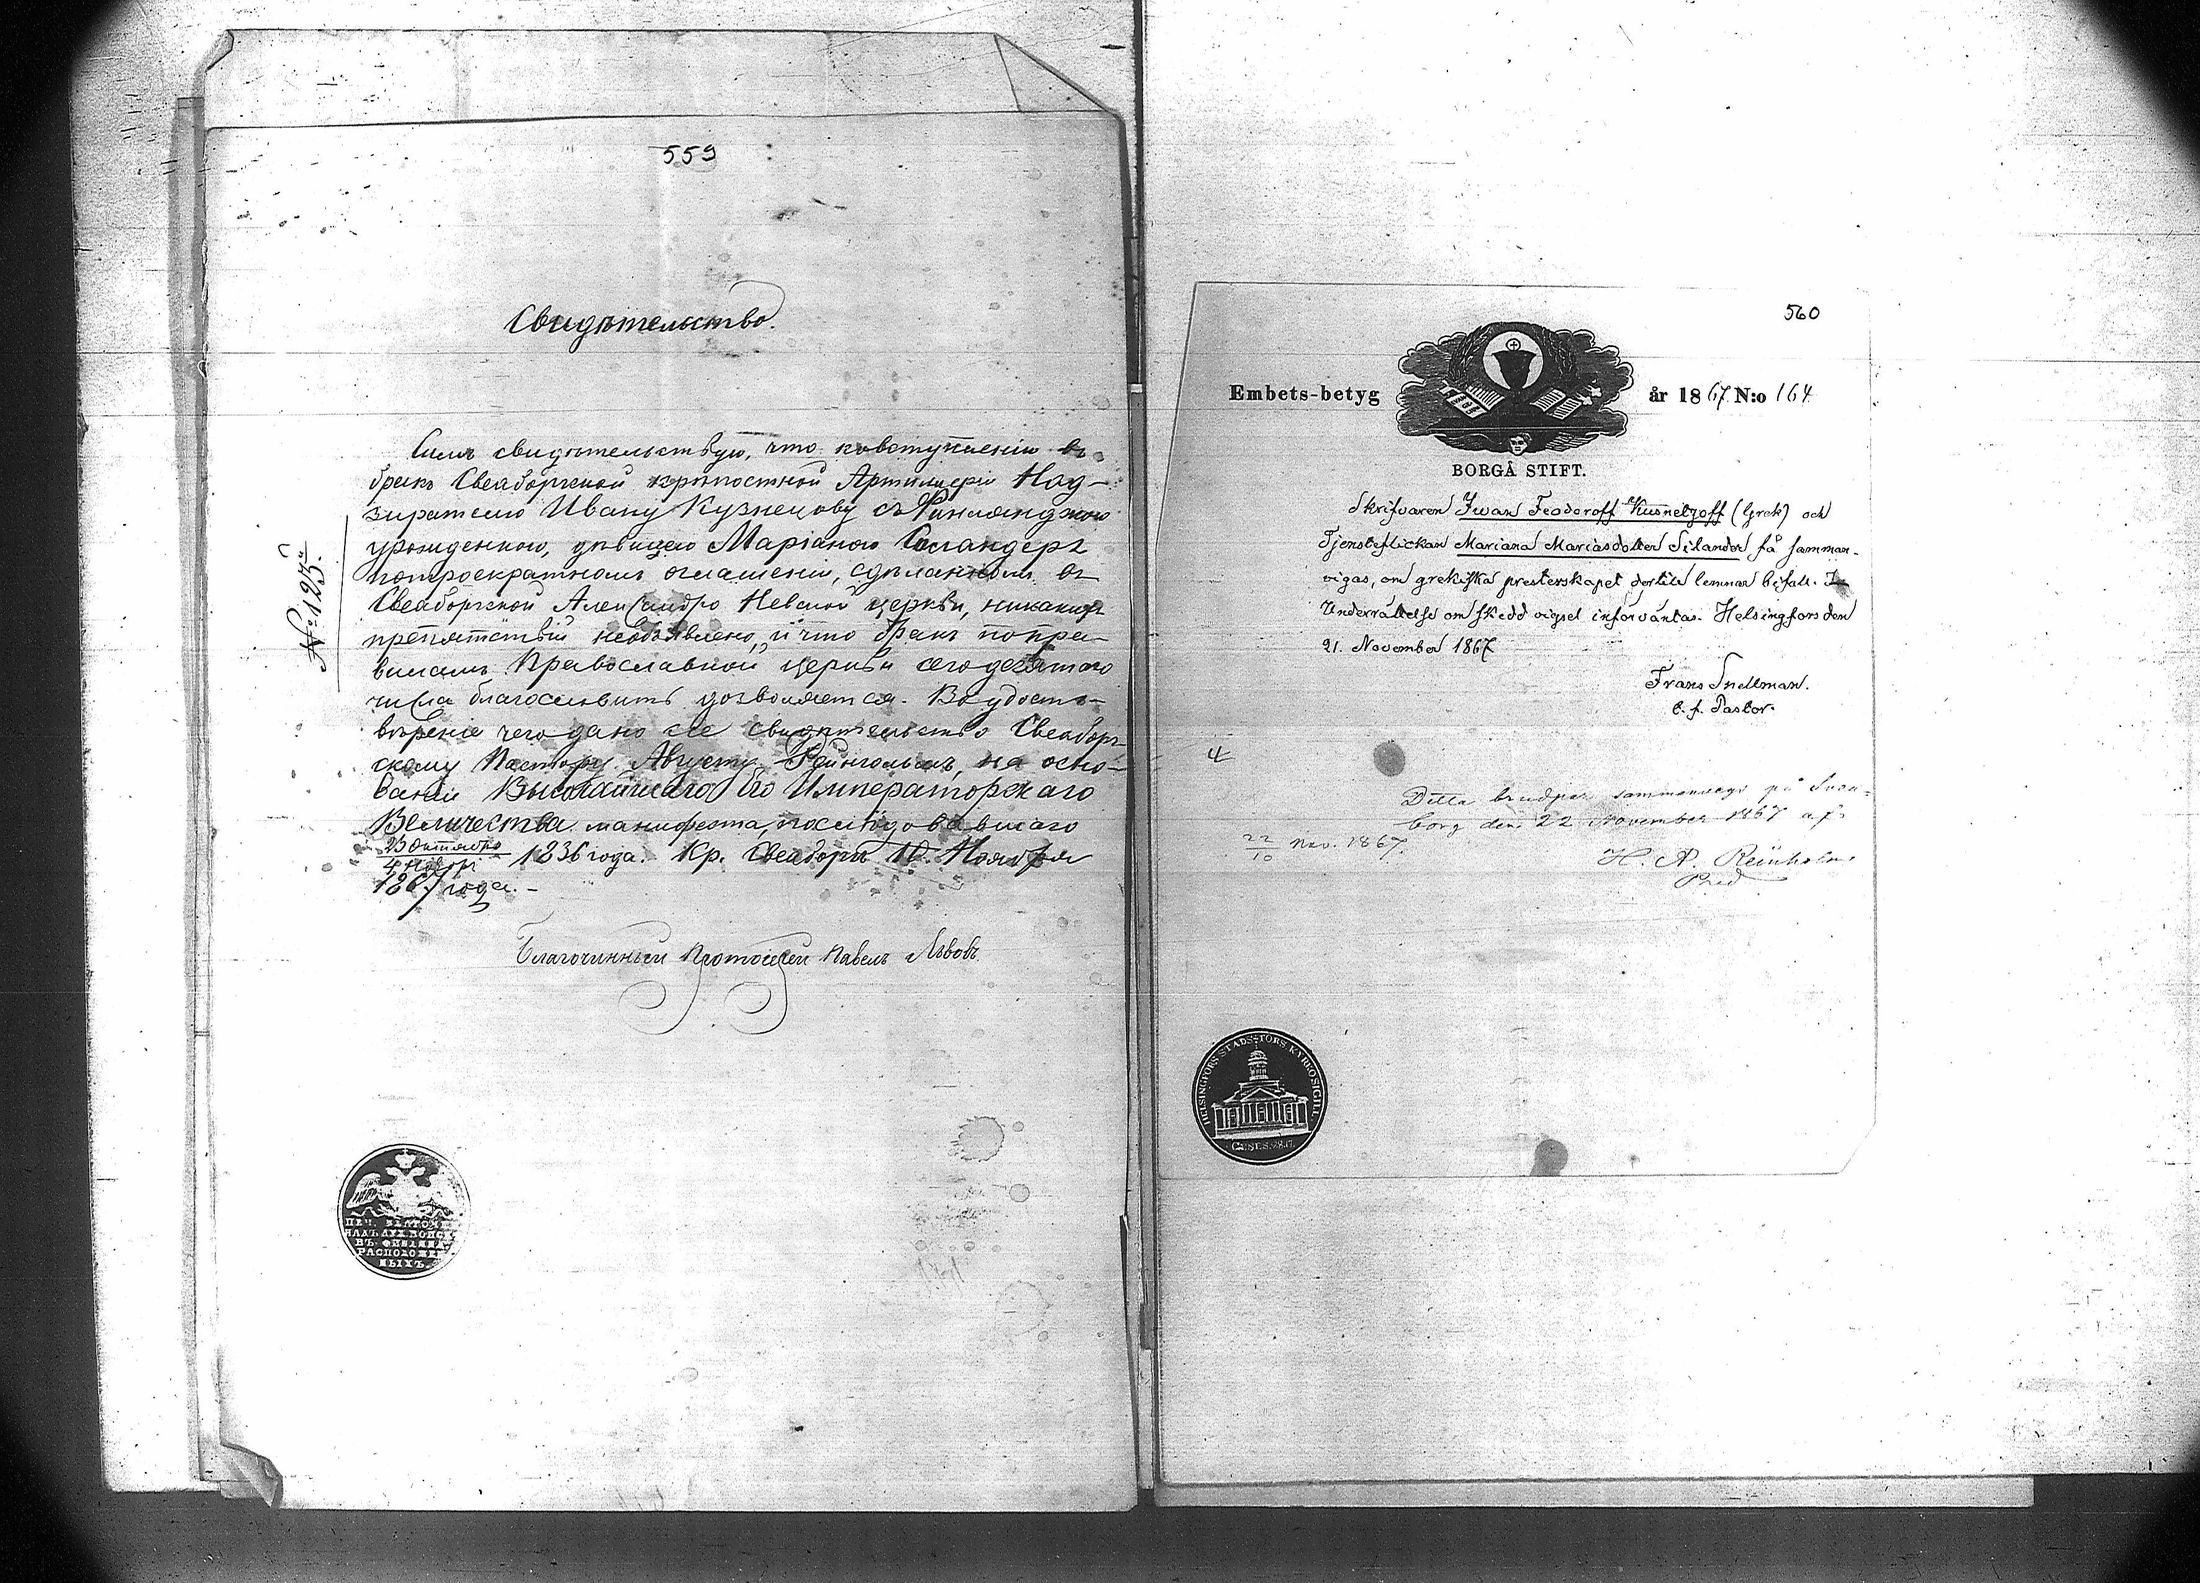 559
Свидѣтельство.
№ 125й
Симъ свидѣтельствую, что ко вступленію въ
бракъ Свеаборгской крѣпостной Артиллеріи Над-
зирателю Ивану Кузнецову съ Финляндскою
уроженкою, дѣвицею Маріаною Силандеръ
по троекратномъ оглашеніи, сдѣланномъ въ
Свеаборгской Александро Невской церкви, никакихъ
препятствій необъявлено, и что бракъ по пра-
виламъ Православной церкви сего десятаго
числа благословить дозволяется. Въ удосто-
вѣреніе чего дано сіе свидѣтельство Свеаборг-
скому Пастору Августу Рейнгольмъ, на осно-
ваніи Высочайшаго Его Императорскаго
Величества манифеста, послѣдовавшаго
23 Октября
4 Ноября
1836 года. Кр. Свеаборгъ 10 Ноября
1867 года.-
Благочинный Протоіерей Павелъ Львовъ
ПЕЧ.
ВЪ
РАСПОЛОЖЕН
НЫХЪ
560
Embets-betyg
år 1867 N:o 164
BORGÅ STIFT.
Skrifvaren Iwan Feodoroff Kusnetzoff (Grek) och
Tjensteflickan Mariana Mariasdotter Silander få samman-
vigas, om grekiska presterskapet dertill lemnar bifall.
Underrättelse om skedd vigsel införväntas. Helsingfors den
21. November 1867
Frans Snellman.
t. f. Pastor.
Detta brudpar sammanvigt på Svea-
borg den 22 November 1867 af
22
10
Nov. 1867.
H. A. Reinholm
Pred
HELSINGFORS STADS-FÖRS. KYRKOSIGILL